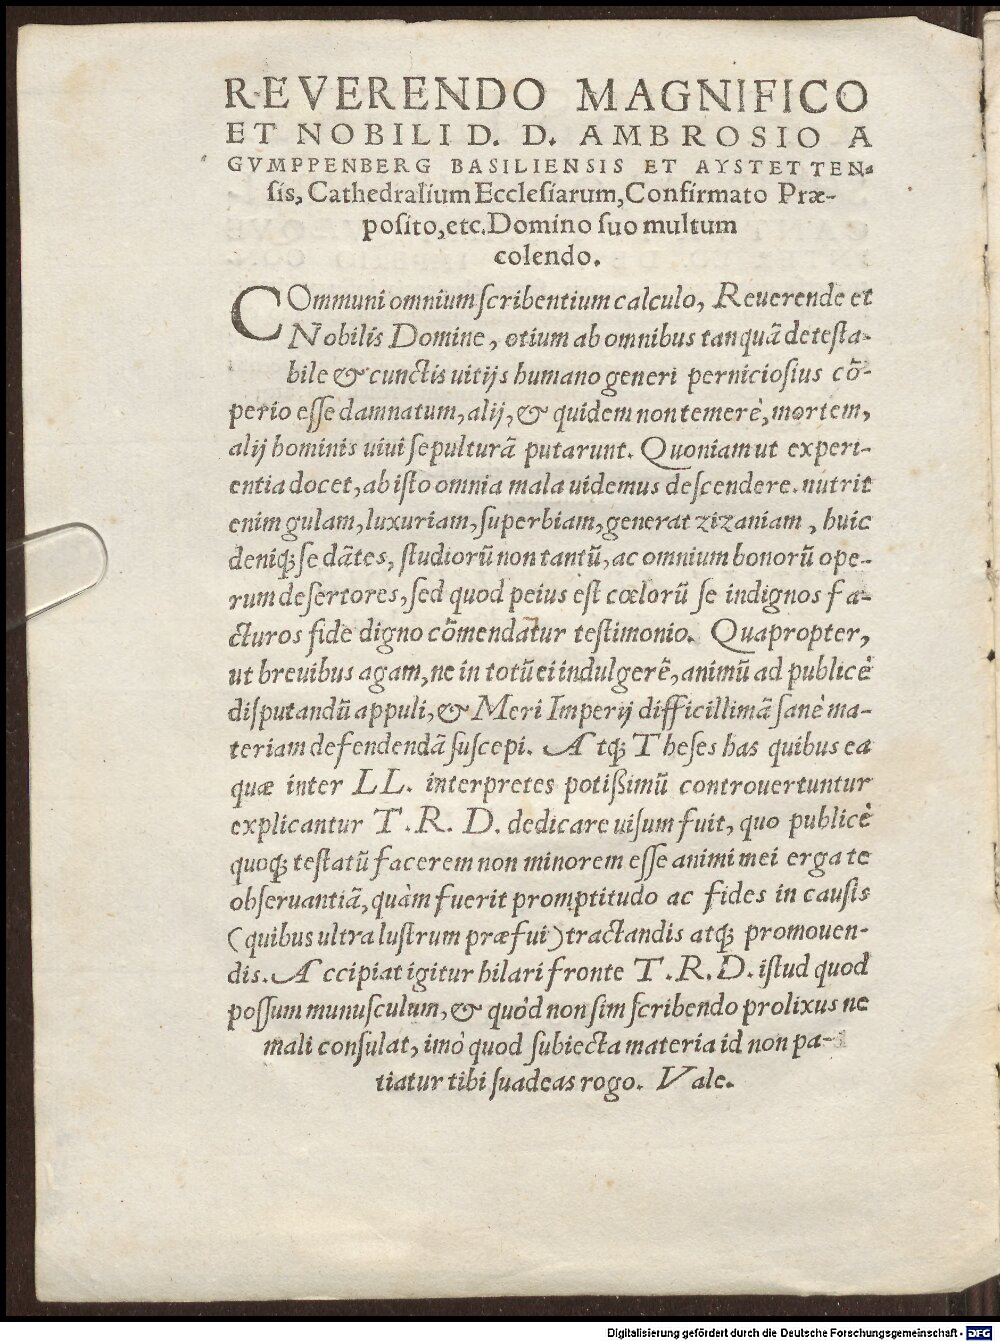 REVERENDO MAGNIFICO
ET NOBILI D. D. AMBROSIO A
GVMPPENBERG BASILIENSIS ET AYSTETTEN-
ſis, Cathedralium Eccleſiarum, Confirmato Præ-
poſito, etc. Domino ſuo multum
colendo.
COmmuni omnium ſcribentium calculo, Reuerende et
Nobilis Domine, otium ab omnibus tanquã deteſta-
bile & cunctis uitijs humano generi pernicioſius cõ-
perio eſſe damnatum, alij, & quidem non temerè, mortem,
alij hominis uiui ſepulturã putarunt. Quoniam ut experi-
entia docet, ab iſto omnia mala uidemus deſcendere. nutrit
enim gulam, luxuriam, ſuperbiam, generat zizaniam, huic
deniq; ſe dãtes, ſtudiorũ non tantũ, ac omnium bonorũ ope-
rum deſertores, ſed quod peius eſt cœlorũ ſe indignos fa-
cturos fide digno cõmendatur teſtimonio. Quapropter,
ut breuibus agam, ne in totũ ei indulgerẽ, animũ ad publicè
diſputandũ appuli, & Meri Imperij difficillimã ſanè ma-
teriam defendendã ſuſcepi. Atq; Theſes has quibus ea
quæ inter LL. interpretes potißimũ controuertuntur
explicantur T. R. D. dedicare uiſum fuit, quo publicè
quoq; teſtatũ facerem non minorem eſſe animi mei erga te
obſeruantiã, quàm fuerit promptitudo ac fides in cauſis
(quibus ultra luſtrum præfui) tractandis atq; promouen-
dis. Accipiat igitur hilari fronte T. R. D. iſtud quod
poſſum munuſculum, & quòd non ſim ſcribendo prolixus ne
mali conſulat, imò quod ſubiecta materia id non pa-
tiatur tibi ſuadeas rogo. Vale.
Digitalisierung gefördert durch die Deutsche Forschungsgemeinschaft - DFG